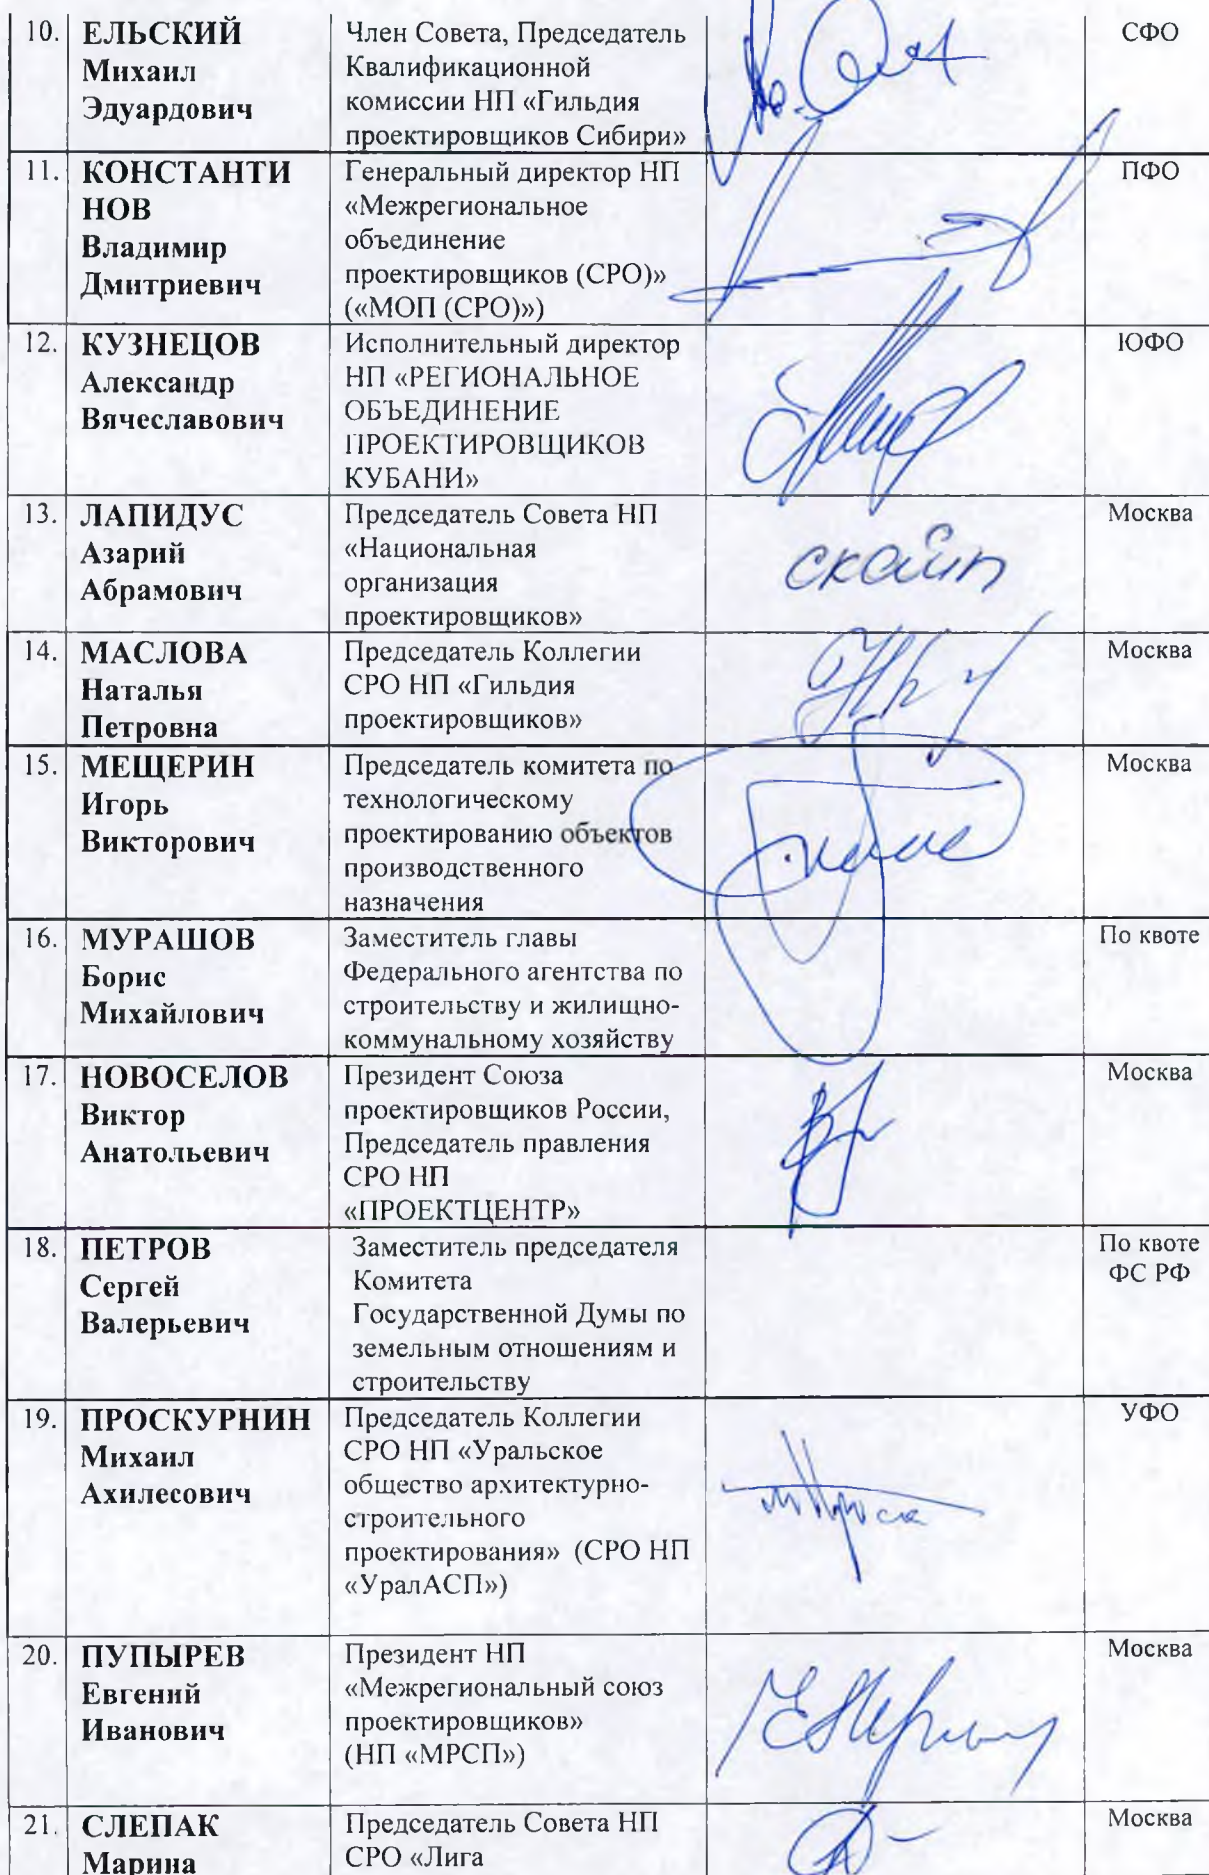 10. ЕЛЬСКИЙ
Михаил
Эдуардович
Член Совета, Председатель
Квалификационной
комиссии НП «Гильдия
проектировщиков Сибири»
СФО
11. КОНСТАНТИ
НОВ
Владимир
Дмитриевич
Генеральный директор НП
«Межрегиональное
объединение
проектировщиков (СРО)»
(«МОП (СРО)»)
ПФО
12. КУЗНЕЦОВ
Александр
Вячеславович
Исполнительный директор
НП «РЕГИОНАЛЬНОЕ
ОБЪЕДИНЕНИЕ
ПРОЕКТИРОВЩИКОВ
КУБАНИ»
ЮФО
13. ЛАПИДУС
Азарий
Абрамович
Председатель Совета НП
«Национальная
организация
проектировщиков»
скайп
Москва
14. МАСЛОВА
Наталья
Петровна
Председатель Коллегии
СРО НП «Гильдия
проектировщиков»
Москва
15. МЕЩЕРИН
Игорь
Викторович
Председатель комитета по
технологическому
проектированию объектов
производственного
назначения
Москва
16. МУРАШОВ
Борис
Михайлович
Заместитель главы
Федерального агентства по
строительству и жилищно-
коммунальному хозяйству
По квоте
17. НОВОСЕЛОВ
Виктор
Анатольевич
Президент Союза
проектировщиков России,
Председатель правления
СРО НП
«ПРОЕКТЦЕНТР»
Москва
18. ПЕТРОВ
Сергей
Валерьевич
Заместитель председателя
Комитета
Государственной Думы по
земельным отношениям и
строительству
По квоте
ФС РФ
19. ПРОСКУРНИН
Михаил
Ахилесович
Председатель Коллегии
СРО НП «Уральское
общество архитектурно-
строительного
проектирования» (СРО НП
«УралАСП»)
УФО
20. ПУПЫРЕВ
Евгений
Иванович
Президент НП
«Межрегиональный союз
проектировщиков»
(НП «МРСП»)
Москва
21. СЛЕПАК
Марина
Председатель Совета НП
СРО «Лига
Москва